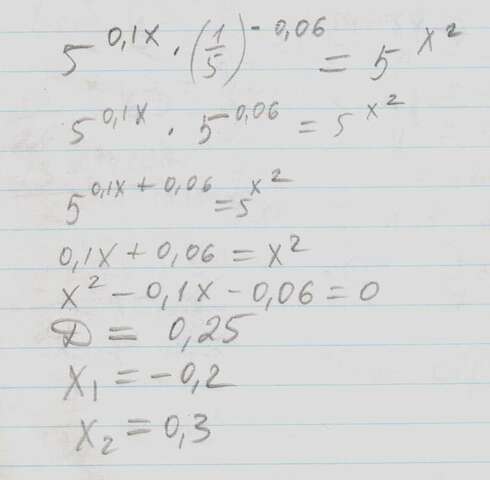 5^{0,1x} · (1/5)^{-0,06} = 5^{x^2}
5^{0,1x} · 5^{0,06} = 5^{x^2}
5^{0,1x + 0,06} = 5^{x^2}
0,1x + 0,06 = x^2
x^2 - 0,1x - 0,06 = 0
D = 0,25
x_1 = -0,2
x_2 = 0,3